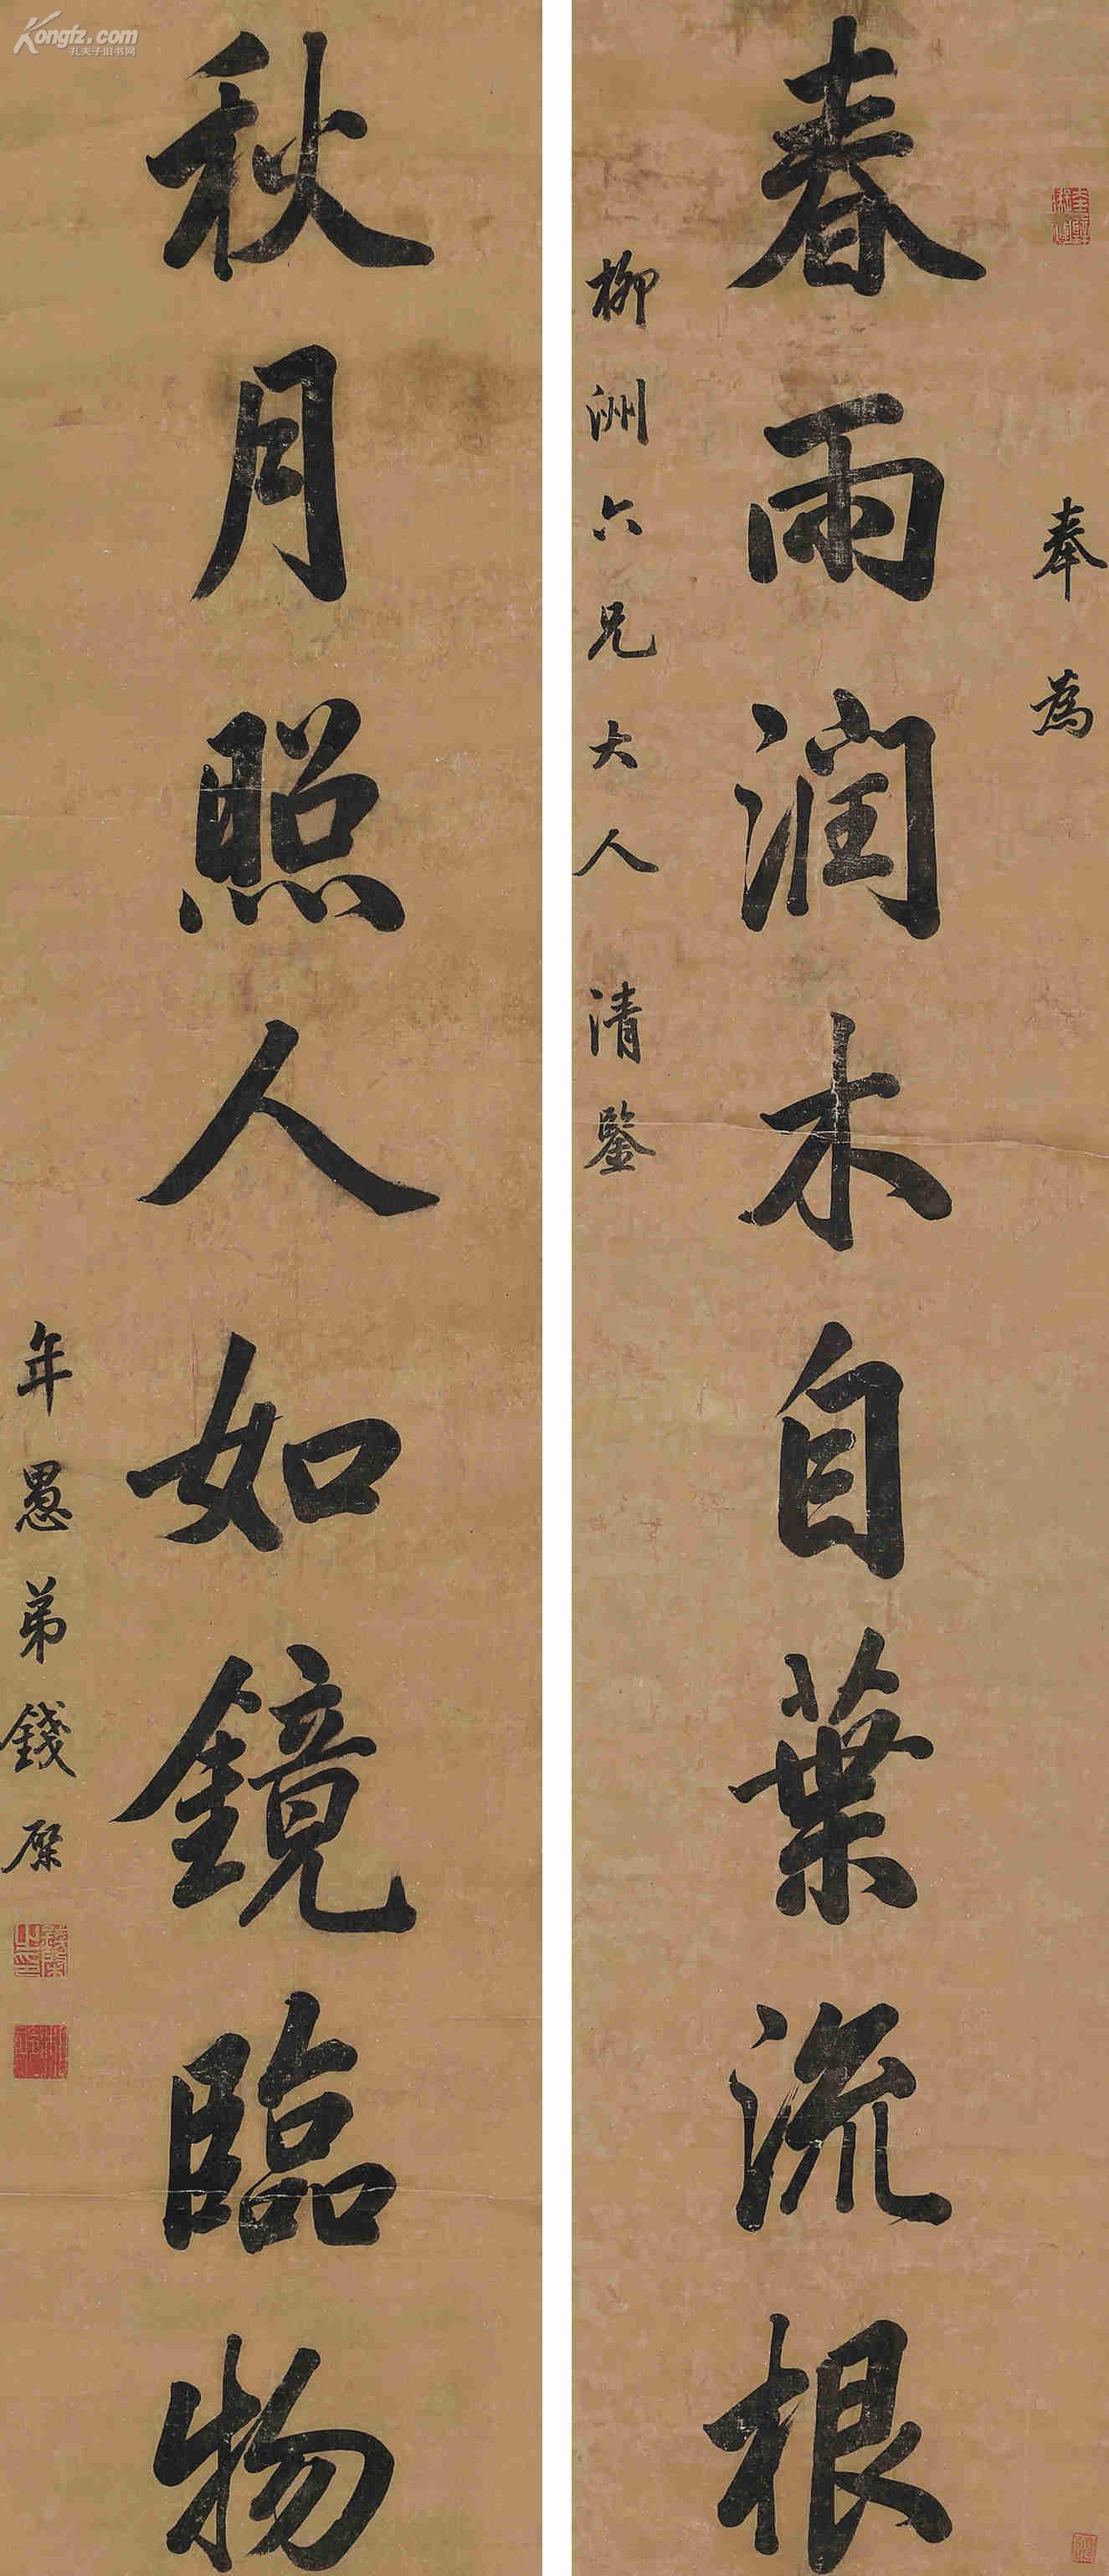 奉為
春雨潤木自葉流根
柳洲六兄大人清鑒
秋月照人如鏡臨物
年愚弟錢棨
Kongfz.com
孔夫子旧书网